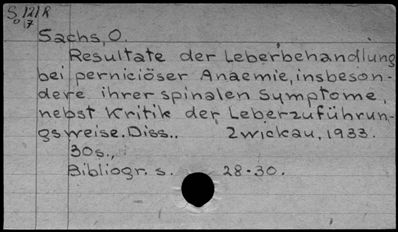 S 121 R
Sachs, O.
Resultate der Leberbehandlung
bei perniciöser Anaemie, insbeson-
dere ihrer spinalen Symptome,
nebst Kritik der Leberzuführun-
gsweise. Diss.. Zwickau, 1933.
30s.,
Bibliogr. s. 28-30.